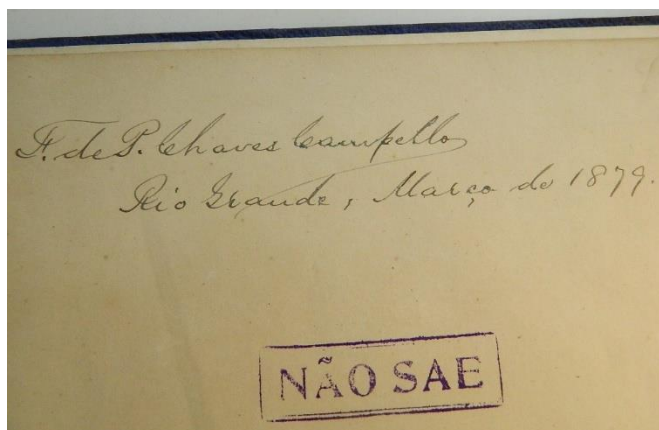 F. de P. Chaves Campello
Rio Grande, Março de 1879.
NÃO SAE